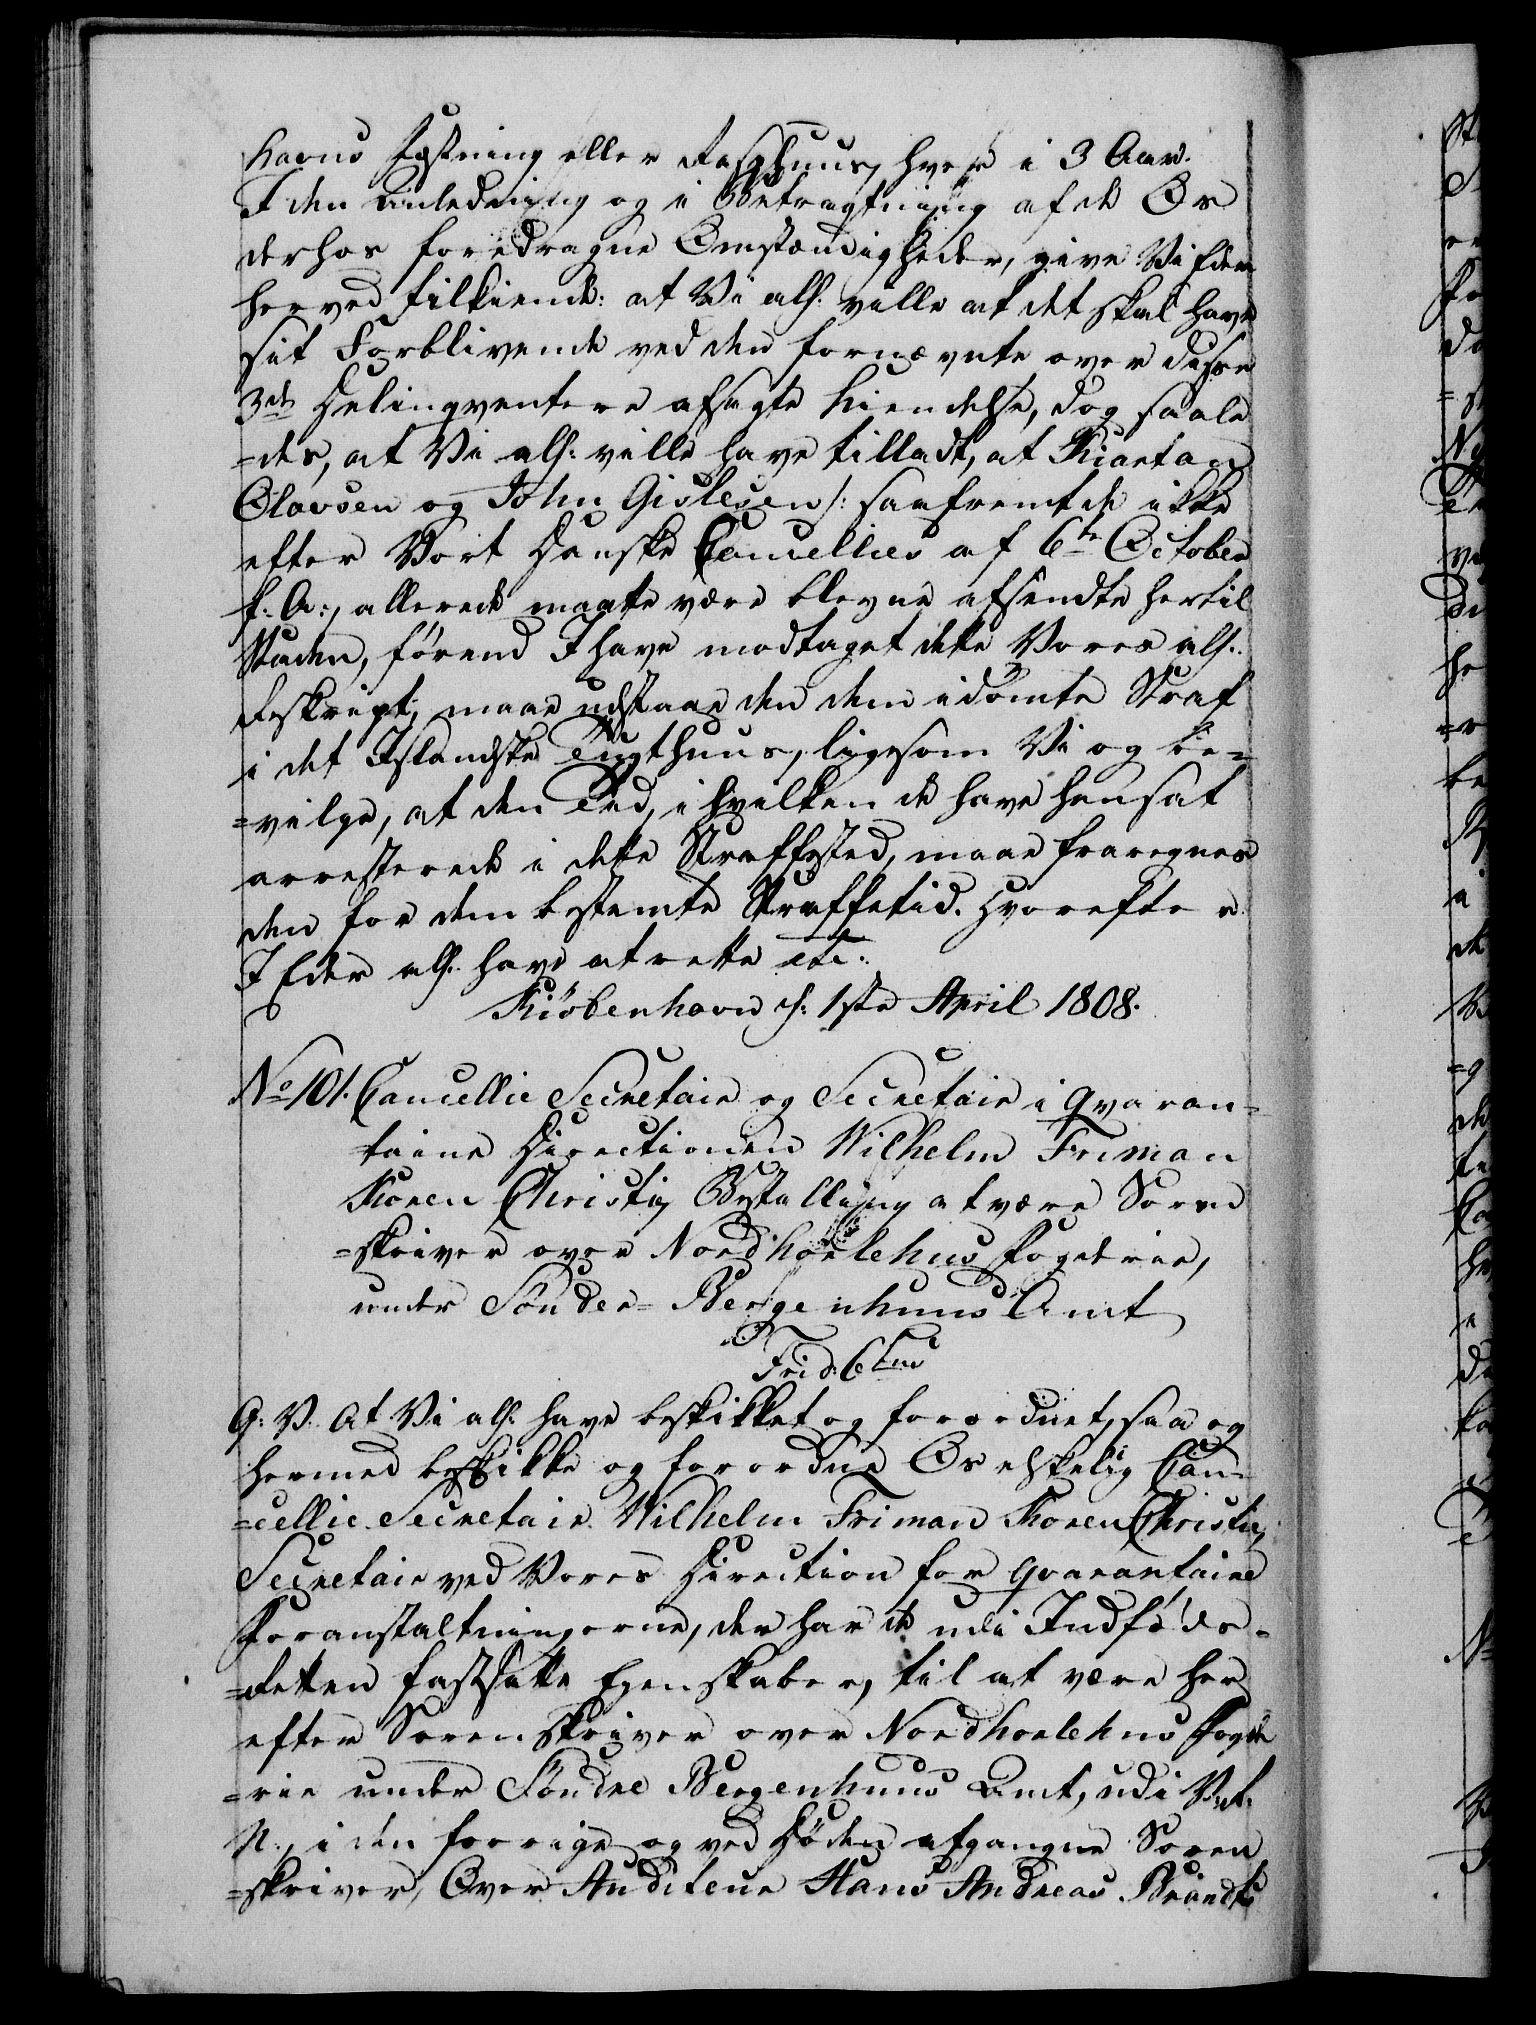 havns Fæstning eller Rasphuus, hver i 3 Aar.
I den Anledning og i Betragtning af de Os
derhos foredragne Omstændigheder, give Vi Eder
herved tilkiende: at Vi alh: ville at det skal have
sit Forblivende ved den fornævnte over disse
3de Delinqventere afsagte Kiendelse, dog saale
=des, at Vi alh: ville have tilladt, at Kiartan
Olavsen og John Gislesen /: saafremt de ikke
efter Vort Danske Cancellies af 6te October
f: A:, allerede maatte være blevne afsendte hertil
Staden, førend I have modtaget dette Vores alh:
Reskript, maae udstaae den dem idømte Straf
i det Islandske Tugthuus, ligesom Vi og be=
=vilge, at den Tid, i hvilken de have hensat
arresterede i dette Straffested, maae fraregnes
den for dem bestemte Straffetid. Hvorefter
I Eder alh: have at rette etc:
Kiöbenhavn d: 1ste April 1808.
No 101. Cancellie Secretair og Secretair i Qvaran=
taine Directionen Wilhelm Friman
Koren Christie Bestalling at være Soren
=skriver over Nordhorlehns Fogderie,
under Sönder=Bergenhuus Amt
Frid: 6tus
G: V. At Vi alh: have beskikket og forordnet, saa og
hermed beskikke og forordne Os elskelig Can=
=cellie Secretair Wilhelm Friman Koren Christie,
Secretair ved Vores Direction for Qvarantaine
Foranstaltningerne, der har de udi Indføds=
=Retten fastsatte Egenskaber, til at være her
efter Sorenskriver over Nordhorlehns Fogde
=rie under Söndre Bergenhuus Amt, udi V: R:
N:, i den forrige og ved Døden afgangne Soren
=skriver, Over Auditeur Hans Andreas Brandts